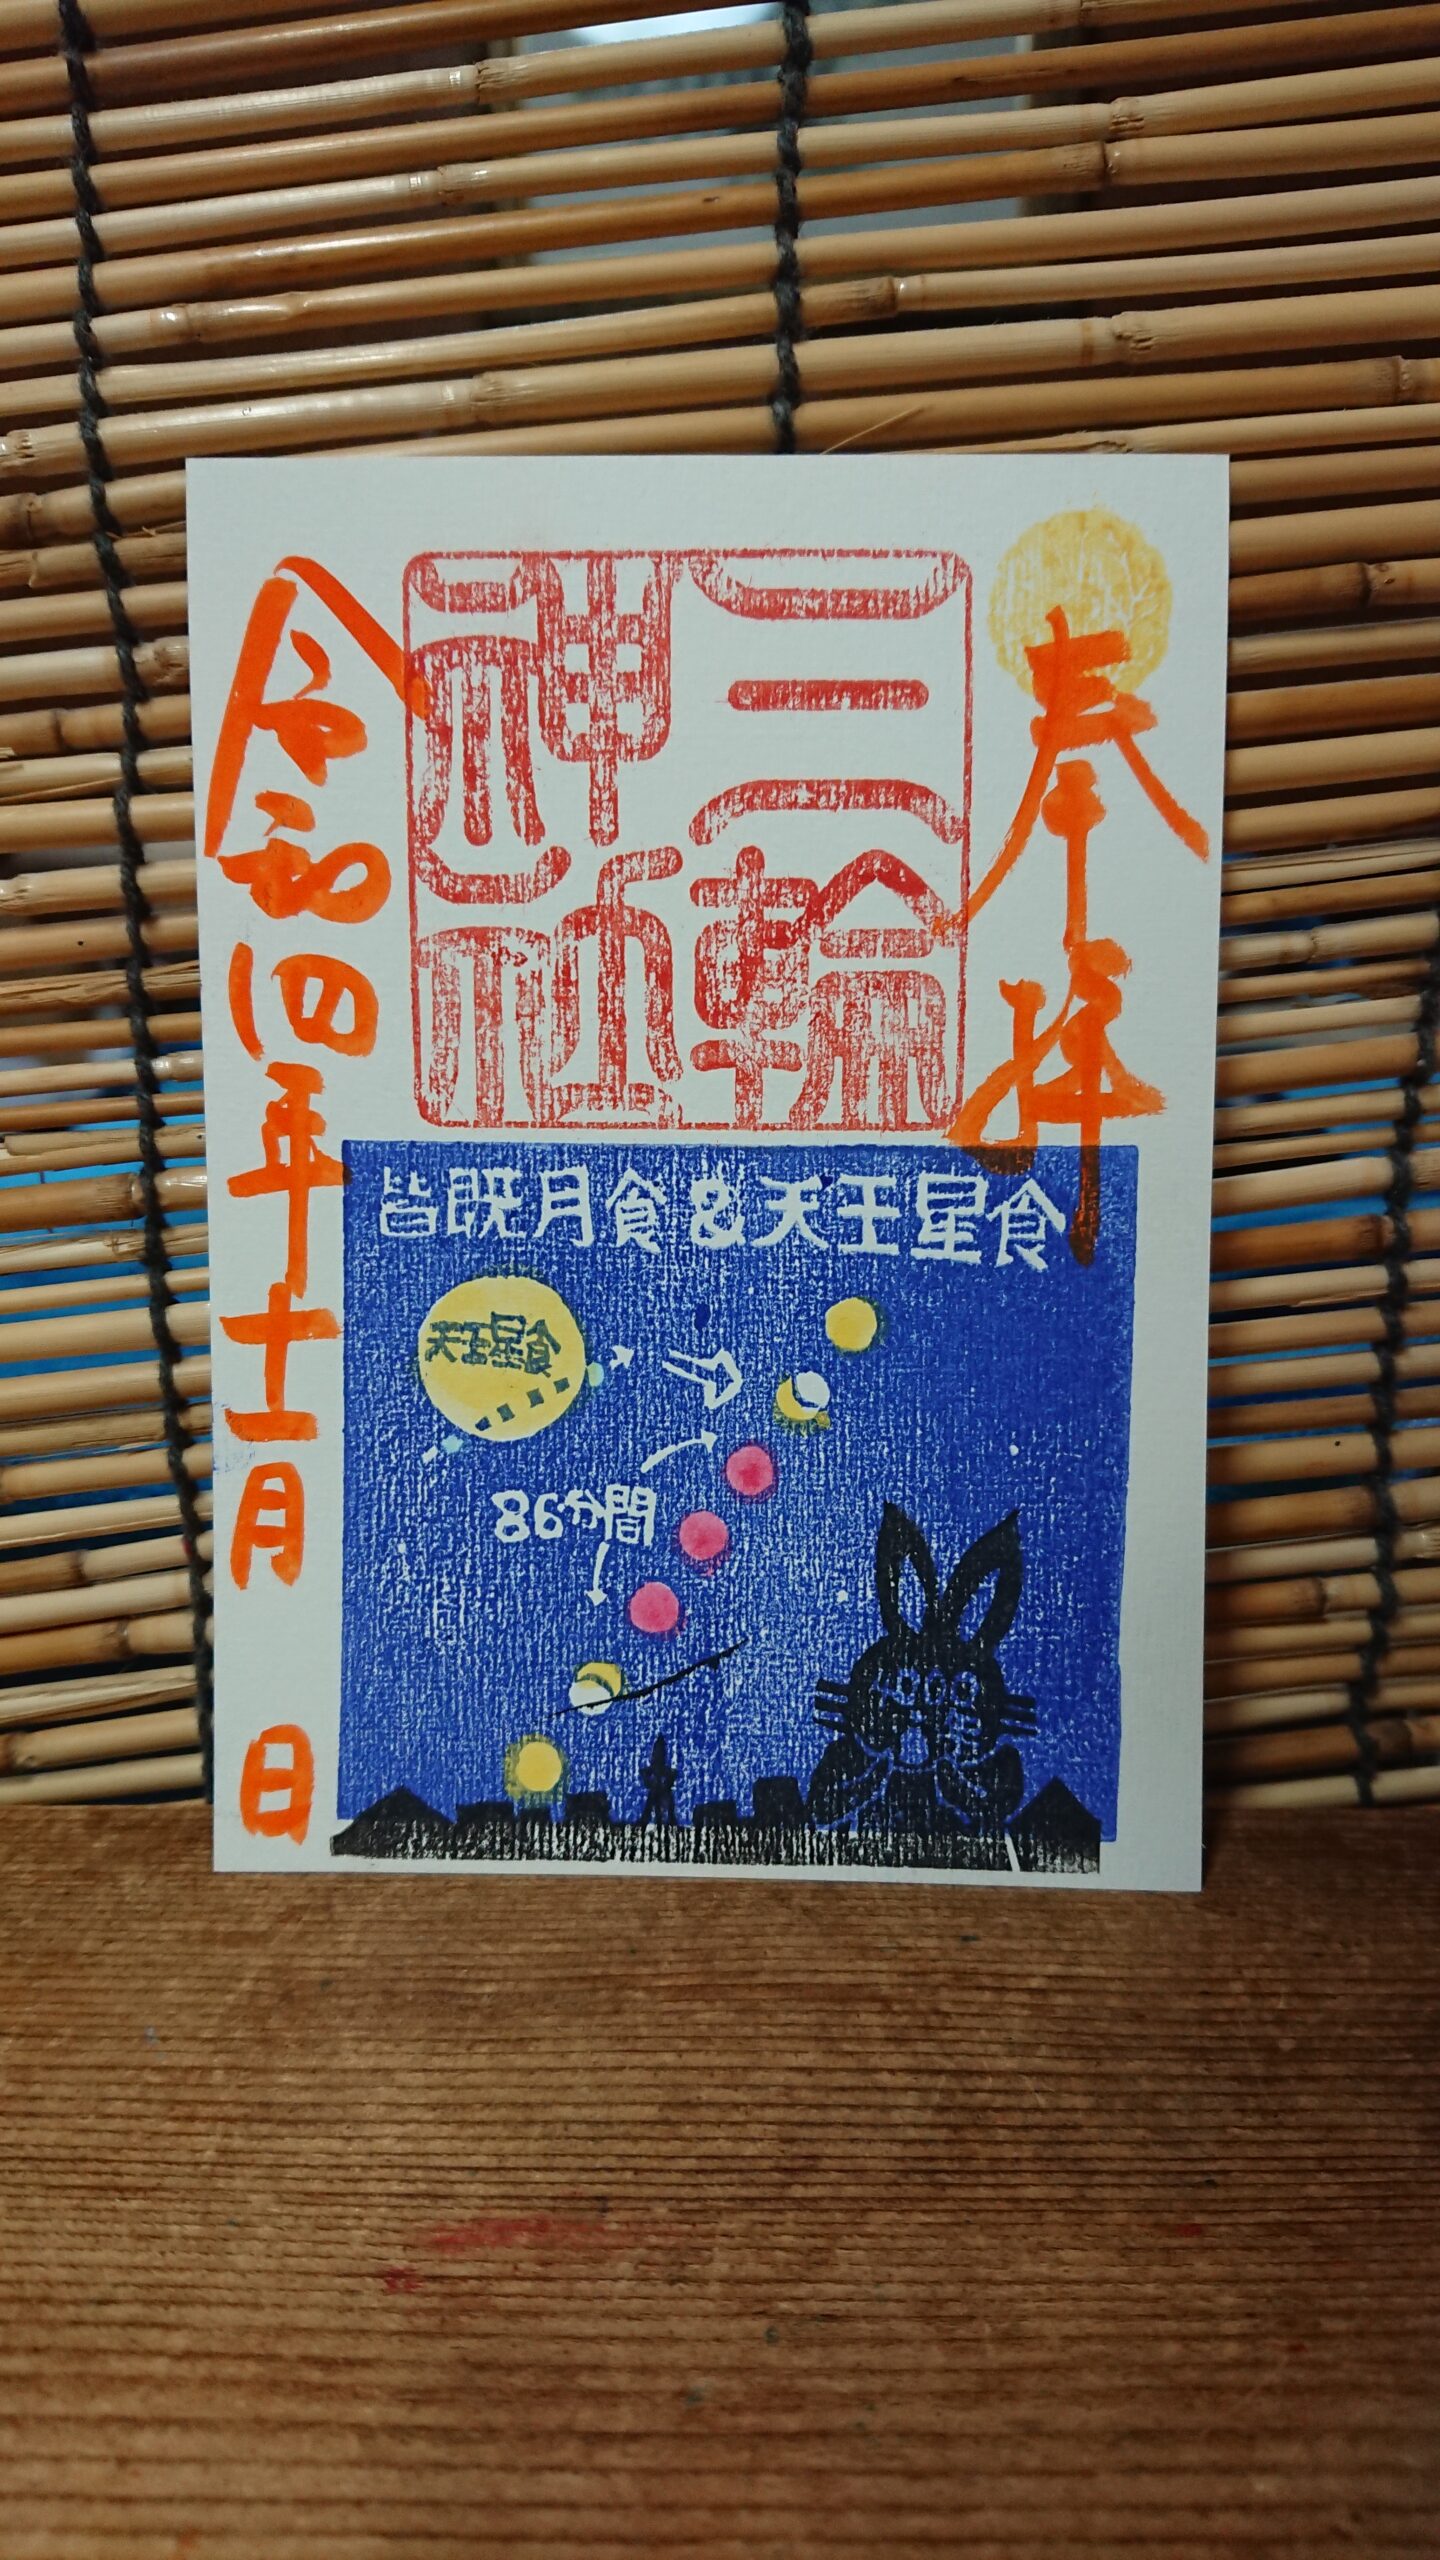 奉拝
三輪
神社
令和四年十一月 日
皆既月食&天王星食
天王星食
86分間